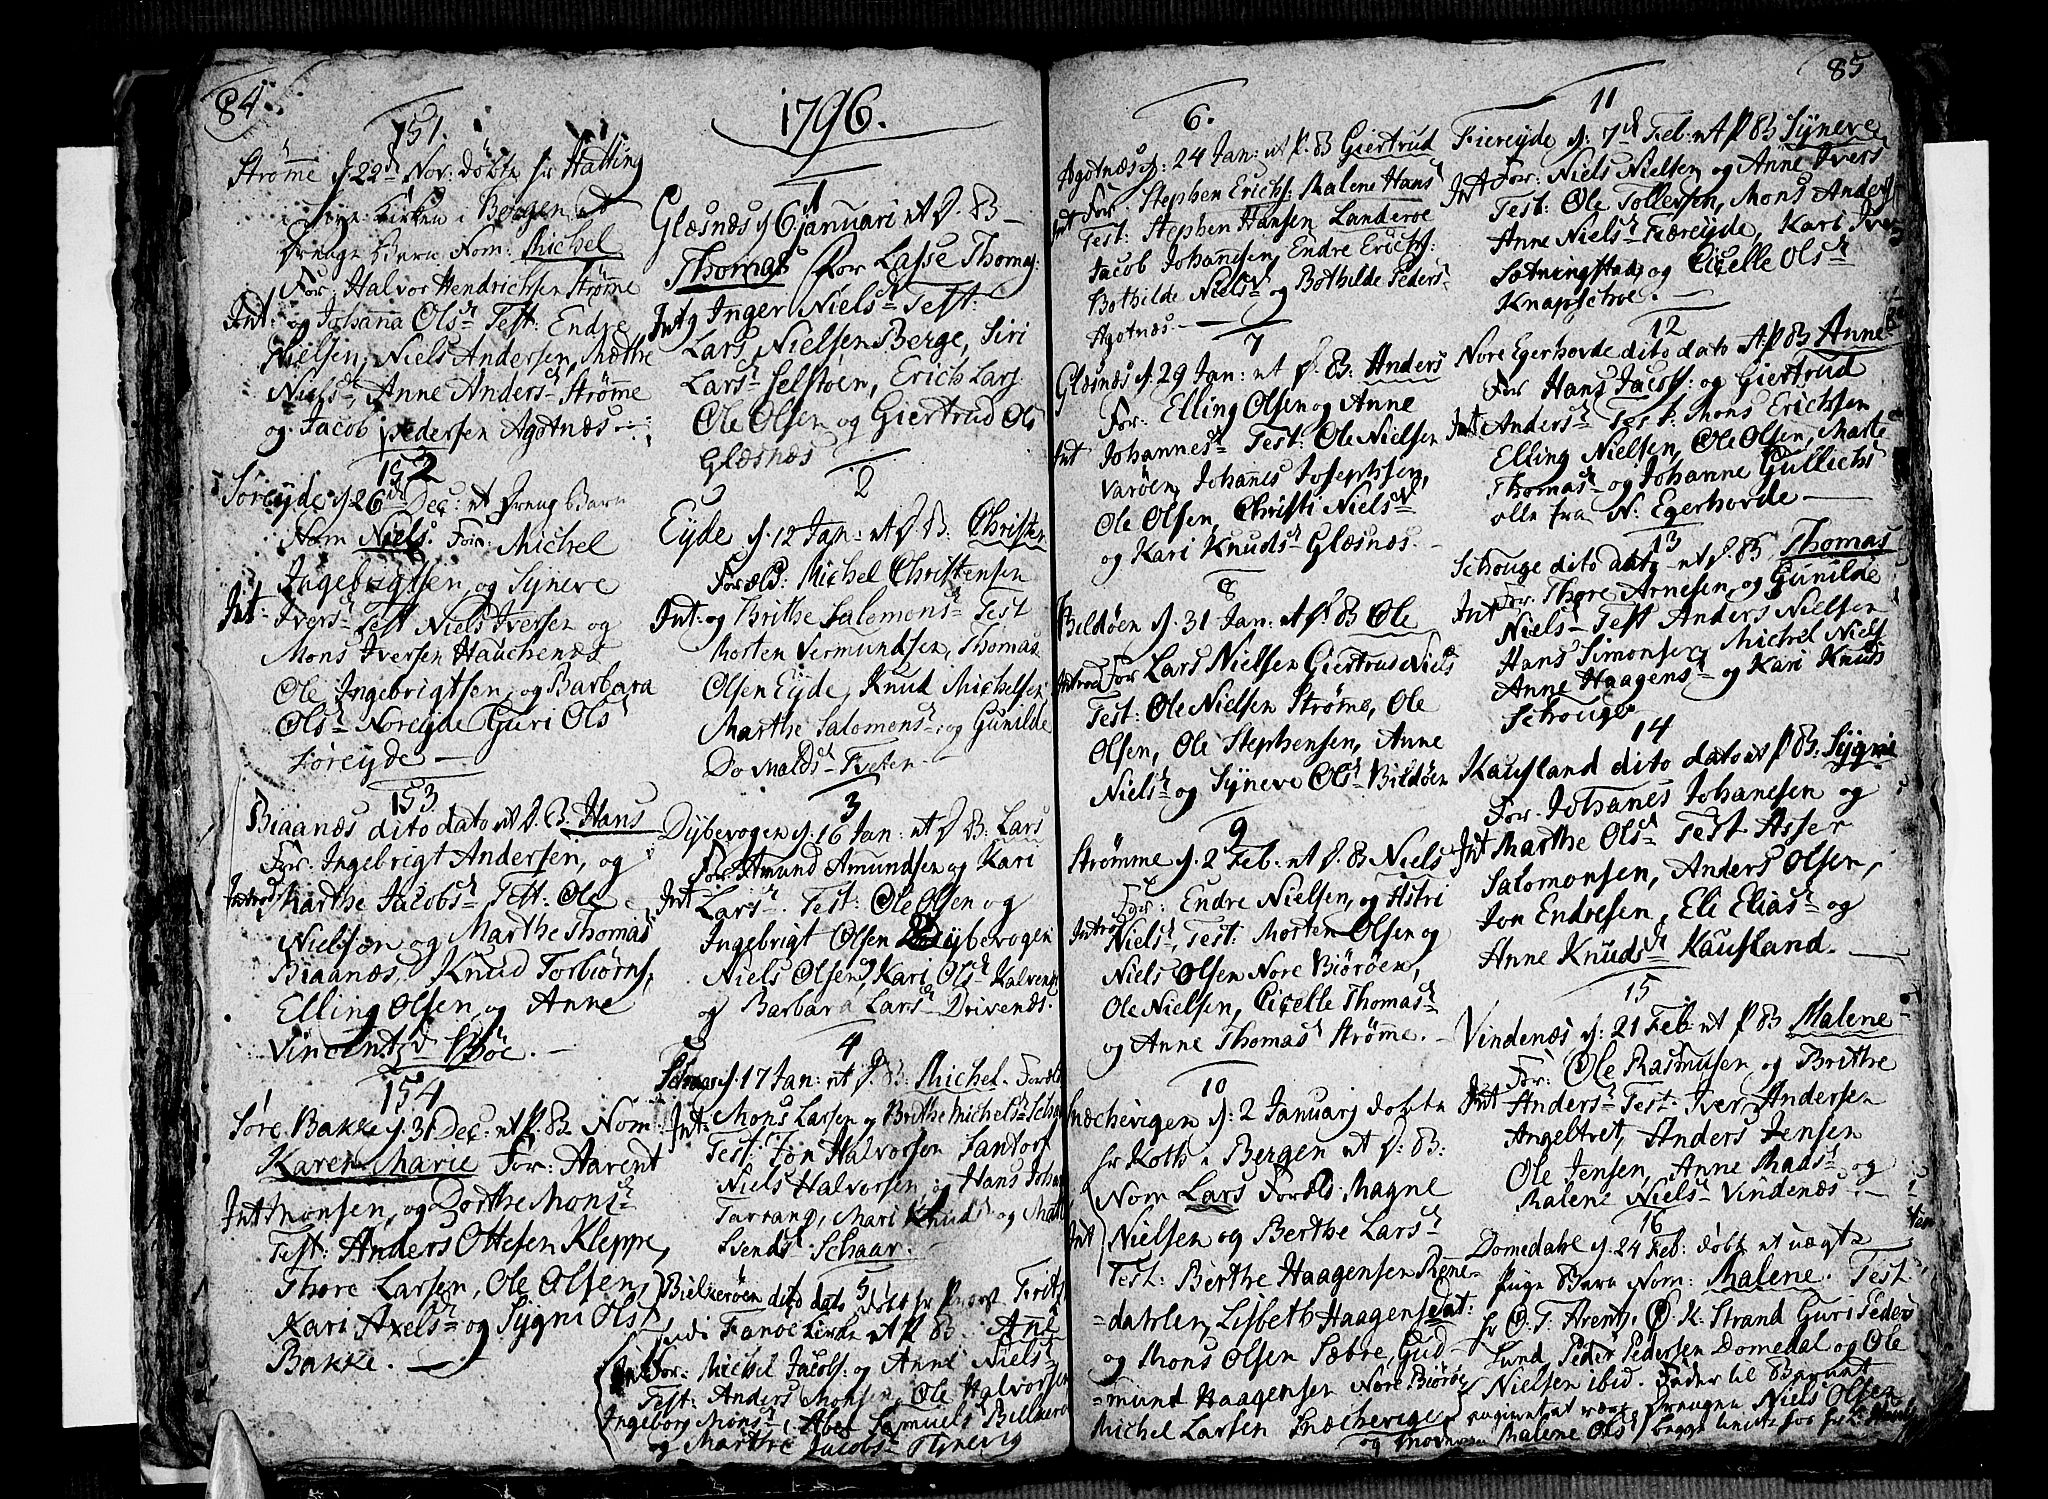 84
151.
Strømme d. 22d Nov: døbte hr Hatting
i Nye Kirken i Bergen et
Drenge Barn Nom: Michel
For: Halvor Hendrichsen Strømme
Int: og Johanna Olsd Test: Endre
Nielsen, Niels Andersen, Mæthe
Nielsd, Anne Andersd Strømme
og Jacob Pedersen Agotnæs
152
Søreyde d. 26d Dec: et Dreng Barn
Nom Niels. For: Michel
Ingebrigtsen, og Syneve
Int: Iversd Test Niels Iversen og
Mons Iversen Hauchenæs
Ole Ingebrigtsen, og Barbara
Olsd Noreyde Guri Olsd
Søreyde
153
Biaanæs dito dato et D. B. Hans
For: Ingebrigt Andersen, og
Introd Marthe Jacobsd Test. Ole
Nielsen og Marthe Thomasd
Biaanæs, Knud Torbiørns,
Elling Olsen, og Anne
Vincentsd Bøe.
154
Søre Bakke d. 31 Dec: et P. B. Nom:
Karen Marie For: Aarent
Int Monsen, og Dorthe Monsd
Test: Anders Ottesen Kleppe,
Thore Larsen, Ole Olsen,
Kari Axelsd og Sygni Olsd
Bakke.
1796.
1
Glæsnæs d 6 Januari et D. B
Thomas For Lasse Thomas:
Int og Inger Nielsd Test:
Lars Nielsen Berge, Siri
Larsd Selstøen, Erich Lars:
Ole Olsen og Giertrud Ols
Glæsnæs
2
Eyde d. 12 Jan: et D. B: Christen
Foræld: Michel Christensen
Int: og Brithe Salomonsd Test
Morten Vermundsen, Thomas
Olsen Eyde, Knud Michelsen
Marthe Salomonsd: og Gunilde
Domaldsd Tveten
3
Dybevogen d. 16 Jan: et D B: Lars
For: Amund Amundsen og Kari
Int Larsd. Test: Ole Olsen og
Ingebrigt Olsen Dybevogen
Niels Olsen, Kari Olsd Kalvenes
og Barbara Larsd Drivenæs.
4
Schaar d. 17 Jan: et D. B: Michel. Foræld
Int: Mons Larsen og Brithe Michelsd Schaar
Test: Jon Halvorsen Santorf
Niels Halvorsen, og Hans Johan
Tarrang, Mari Knudsd og Mar
Svendsd Schaar.
5
Bielkerøen dito dato døbt hr Præst Frits
i Fanøe Kirke et P B. Ane
Int For: Michel Jacobs: og Anne Nielsd
Test: Anders Monsen, Ole Halvorsen
Ingeborg Monsd, Abel Samuelsd Bilkerø
og Marthe Jacobsd
85
6.
Agotnæs d: 24 Jan: et P. B Giertrud
Int For: Stephen Erichs: Malene Hansd
Test: Stephen Hansen Landerøe
Jacob Johanesen, Endre Erichs:
Bothilde Nielsd og Bothilde Pedersd
Agotnæs
7
Glæsnæs d. 29 Jan: et D. B: Anders
For: Elling Olsen og Anne
Int Johannesd Test: Ole Nielsen
Varøen, Johanes Josephsen,
Ole Olsen, Christi Nielsd
og Kari Knudsd Glæsnæs.
8
Bildøen d. 31 Jan: et D. B Ole
Introd For Lars Nielsen Giertrud Niels
Test: Ole Nielsen Strøme, Ole
Olsen, Ole Stephensen, Anne
Nielsd og Syneve Olsd Bildøen
9
Strømme d. 2 Feb: et D. B Niels
For: Endre Nielsen, og Astri
Introd Nielsd, Test: Morten Olsen og
Niels Olsen Nore Biørøen,
Ole Nielsen, Cicelle Thomasd
og Anne Thomasd Strøme.
10
Snechevigen d. 2 Januarj døbte
hr Koth i Bergen et D: B:
Nom Lars Foræld: Magne
Int Nielsen og Berthe Larsd
Test: Berthe Haagensen Rene=
=dahlen, Lisbeth Haagensdat:
og Mons Olsen Sæbre, Gud=
=mund Haagensen Nore Biørøe
Michel Larsen Snechevigen
11
Fiereyde d. 7d Feb: et P B Syneve
Int For: Niels Nielsen og Anne Ivers
Test: Ole Tollefsen, Mons Anders
Anne Nielsd Færeyde, Kari Ivers
Sotningstad, og Cicelle Olsd
Knapschoe.
12
Nore Egerhovde dito dato et P B Anne
For Hans Jacobs: og Giertrud
Int Andersd Test: Mons Erichsen
Elling Nielsen, Ole Olsen, Marte
Thomasd og Johanne Gullichs
alle fra N: Egerhovde
13
Schouge dito dato et D. B Thomas
For: Thore Arnesen, og Gunilde
Int Nielsd Test Anders Nielsen
Hans Simonsen, Michel Niels
Anne Haagensd og Kari Knuds
Schouge
14
Kausland dito dato et P B: Sygni
For: Johanes Johanesen og
Int Marthe Olsd Test Asser
Salomonsen, Anders Olsen,
Jon Endresen, Eli Eliasd og
Anne Knudsd Kausland.
15
Vindenæs d: 21 Feb et P B Malene
For: Ole Rasmusen, og Brithe
Int Andersd Test: Iver Andersen
Angeltvet, Anders Jensen
Ole Jensen, Anne Madsd og
Malene Nielsd Vindenæs.
16
Domedahl d. 24 Feb: døbt et uægte
Pige Barn Nom: Malene. Test
hr O. T. Arentz, O. K. Strand Guri Peders
Lund Peder Pedersen Domedal og Ole
Nielsen ibid. Fader til Barnet
angivet at være Drengen Niels Olsen
og Moderen Malene Olsd begge